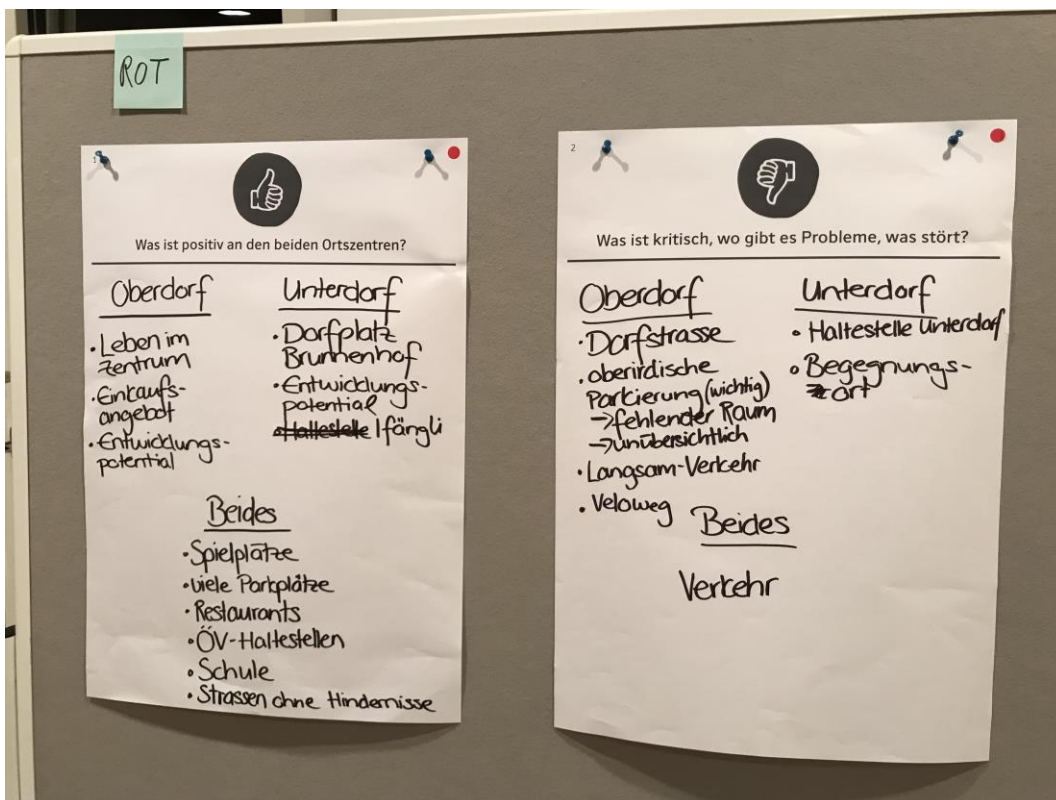 ROT
1
Was ist positiv an den beiden Ortszentren?
Oberdorf
• Leben im
Zentrum
• Einkaufs-
angebot
• Entwicklungs-
potential
Unterdorf
• Dorfplatz
Brunnenhof
• Entwicklungs-
potential
• Haltestelle Ifängli
Beides
• Spielplätze
• viele Parkplätze
• Restaurants
• ÖV-Haltestellen
• Schule
• Strassen ohne Hindernisse
2
Was ist kritisch, wo gibt es Probleme, was stört?
Oberdorf
• Dorfstrasse
• oberirdische
Parkierung (wichtig)
→ fehlender Raum
→ unübersichtlich
• Langsam-Verkehr
• Veloweg
Unterdorf
• Haltestelle Unterdorf
• Begegnungs-
ort
Beides
Verkehr